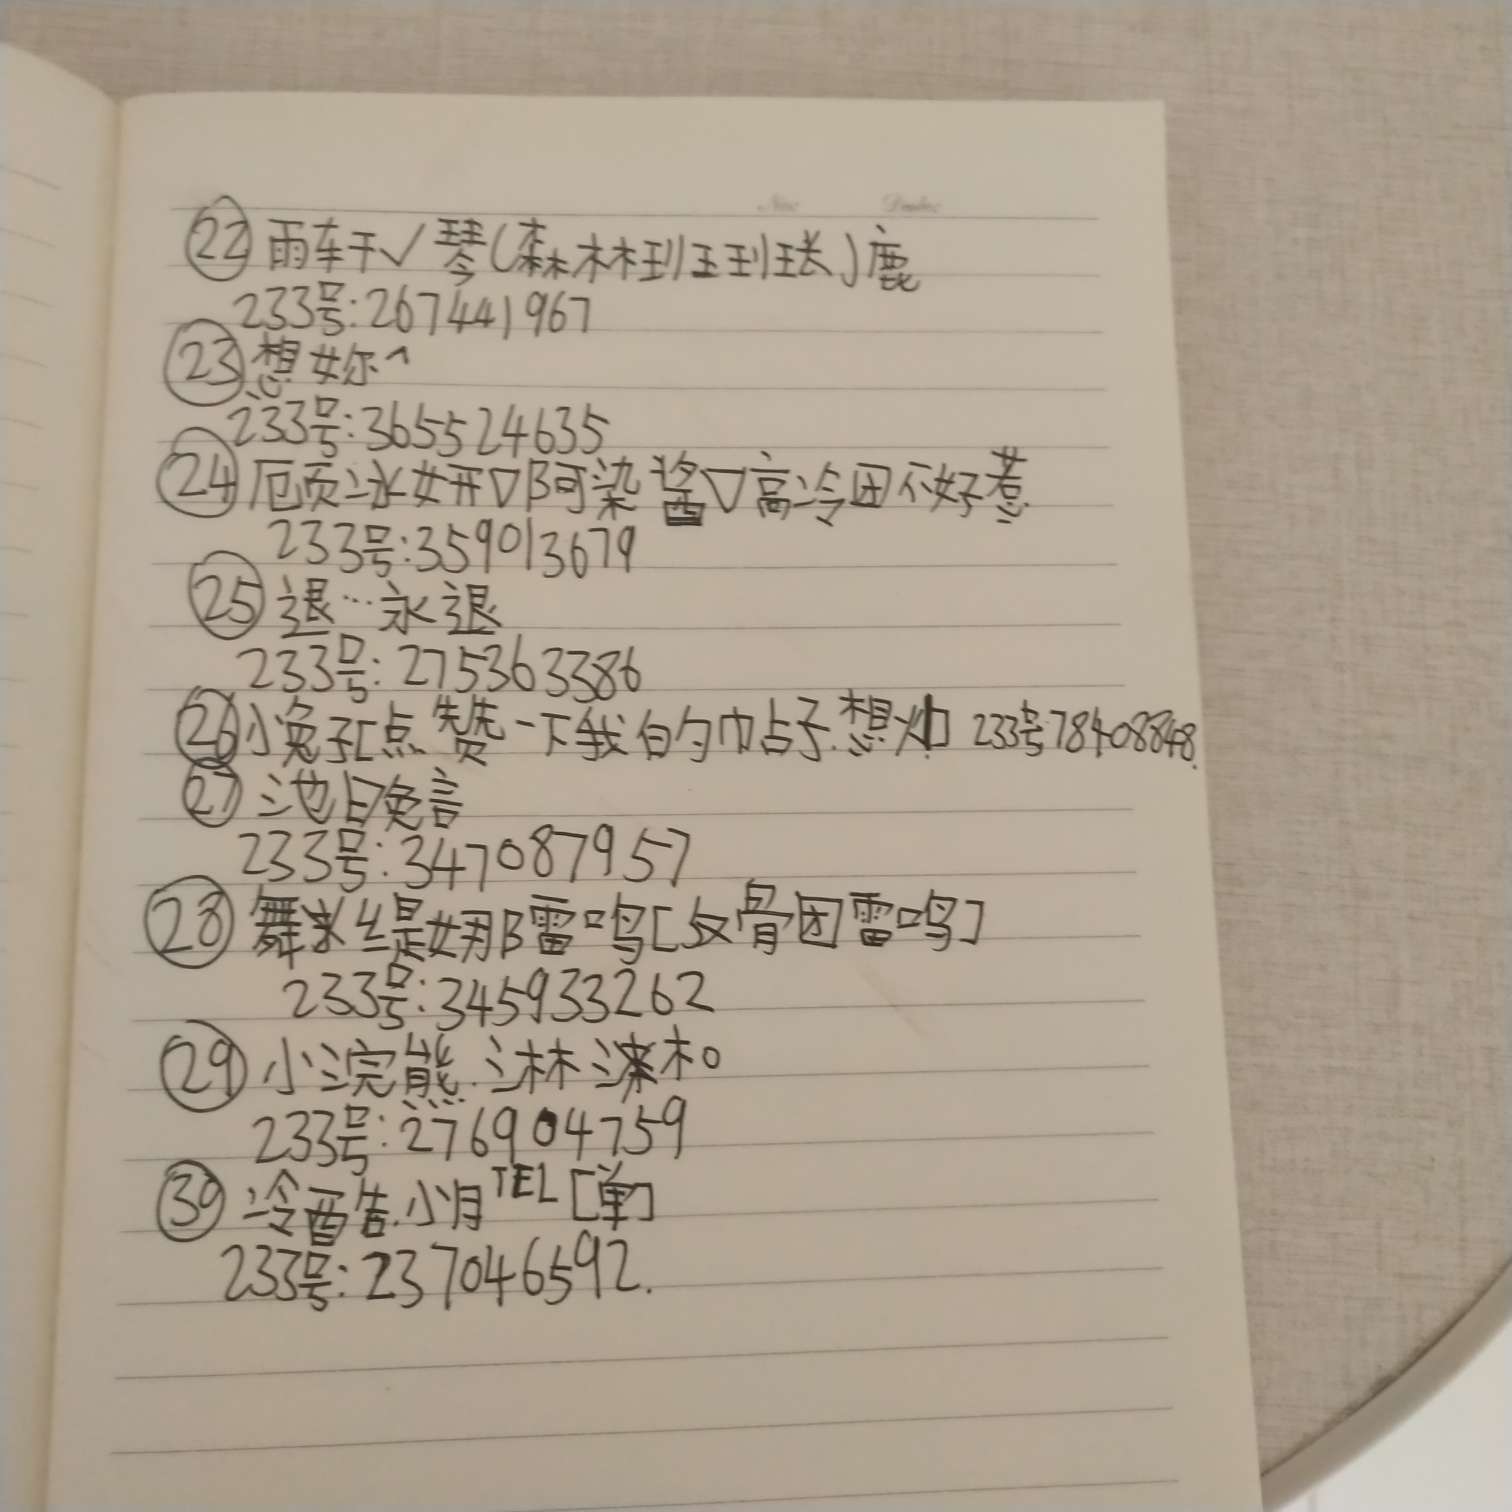 ㉒雨轩√琴(森林到王到球)鹿
233号:267441967
㉓想妳^
233号:365524635
㉔厄页泳妍▽阿染酱▽高冷团不好惹
233号:359013679
㉕退…永退
233号:275363386
㉖小兔子[点赞一下我的帖子.想 233号78408848.
㉗池日兔言
233号:347087957
㉘舞 缇娜雷鸣[反骨团雷鸣]
233号:345933262
㉙小浣熊.淋漆木o
233号:276904759
㉚冷酷.小月TEL[单]
233号:237046592.